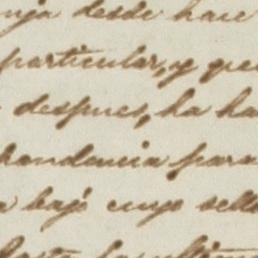 nja desde hace
particular, y que
despues, ha ha
handancia para
a bajo cuyo sello